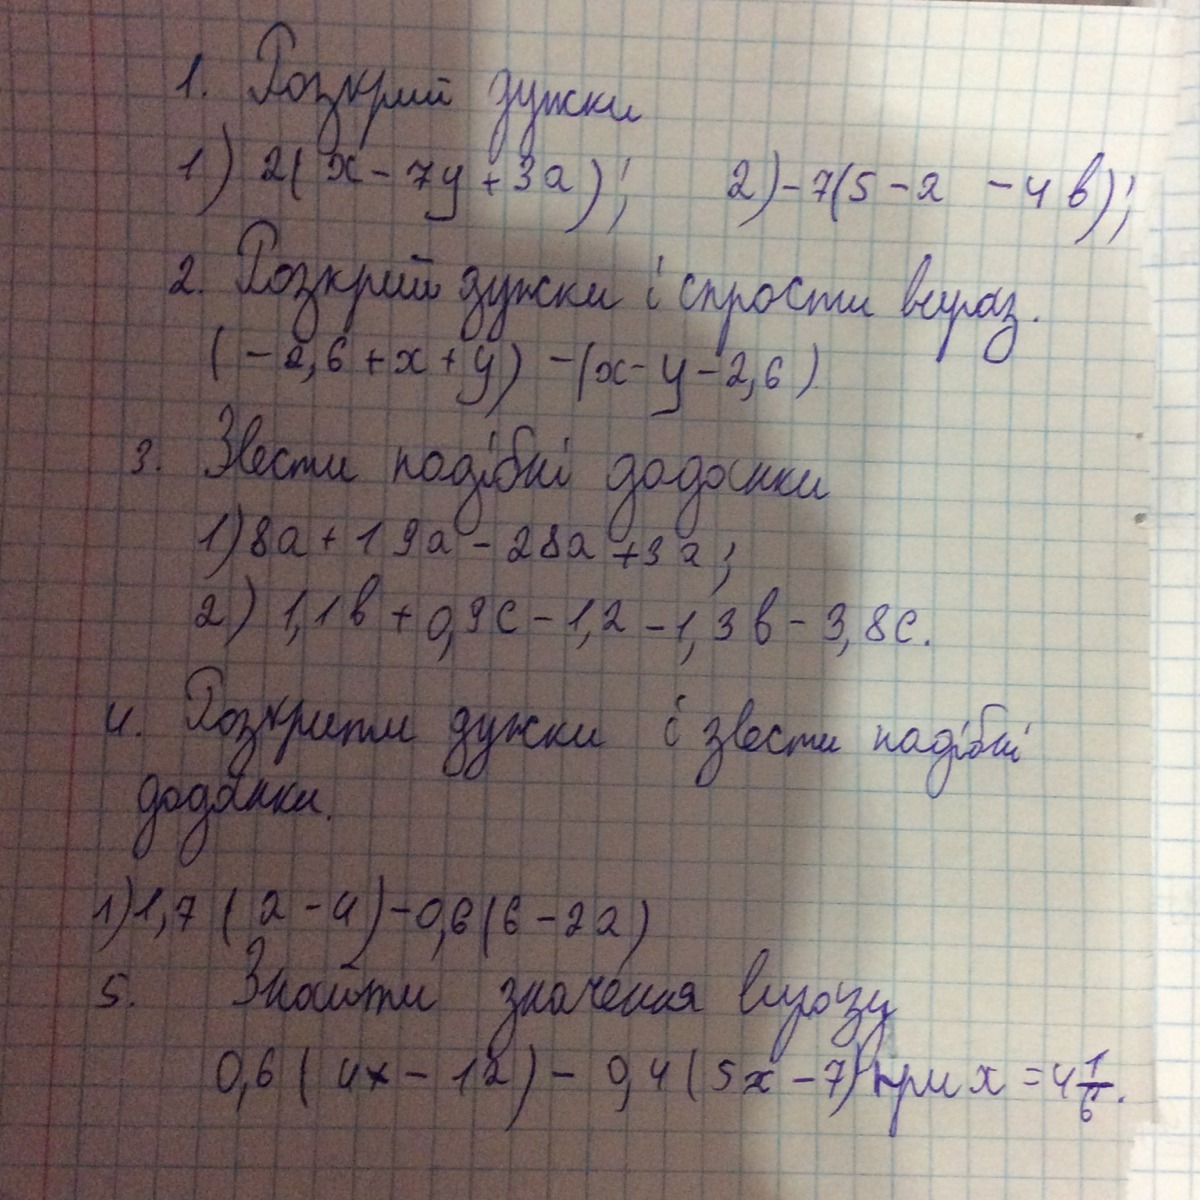 1. Розкрий дужки
1) 2(x - 7y + 3a); 2) - 7(5 - a - 4b);
2. Розкрий дужки і спрости вираз.
(- 2,6 + x + y) - (x - y - 2,6)
3. Звести подібні доданки
1) 8a + 19a - 28a + 3a;
2) 1,1b + 0,9c - 1,2 - 1,3b - 3,8c.
4. Розкрити дужки і звести подібні
доданки.
1) 1,7 (a - 4) - 0,6 (6 - 2a)
5. Знайти значення виразу
0,6 ( 4x - 12) - 0,4 ( 5x - 7) при x = 4 1/6.